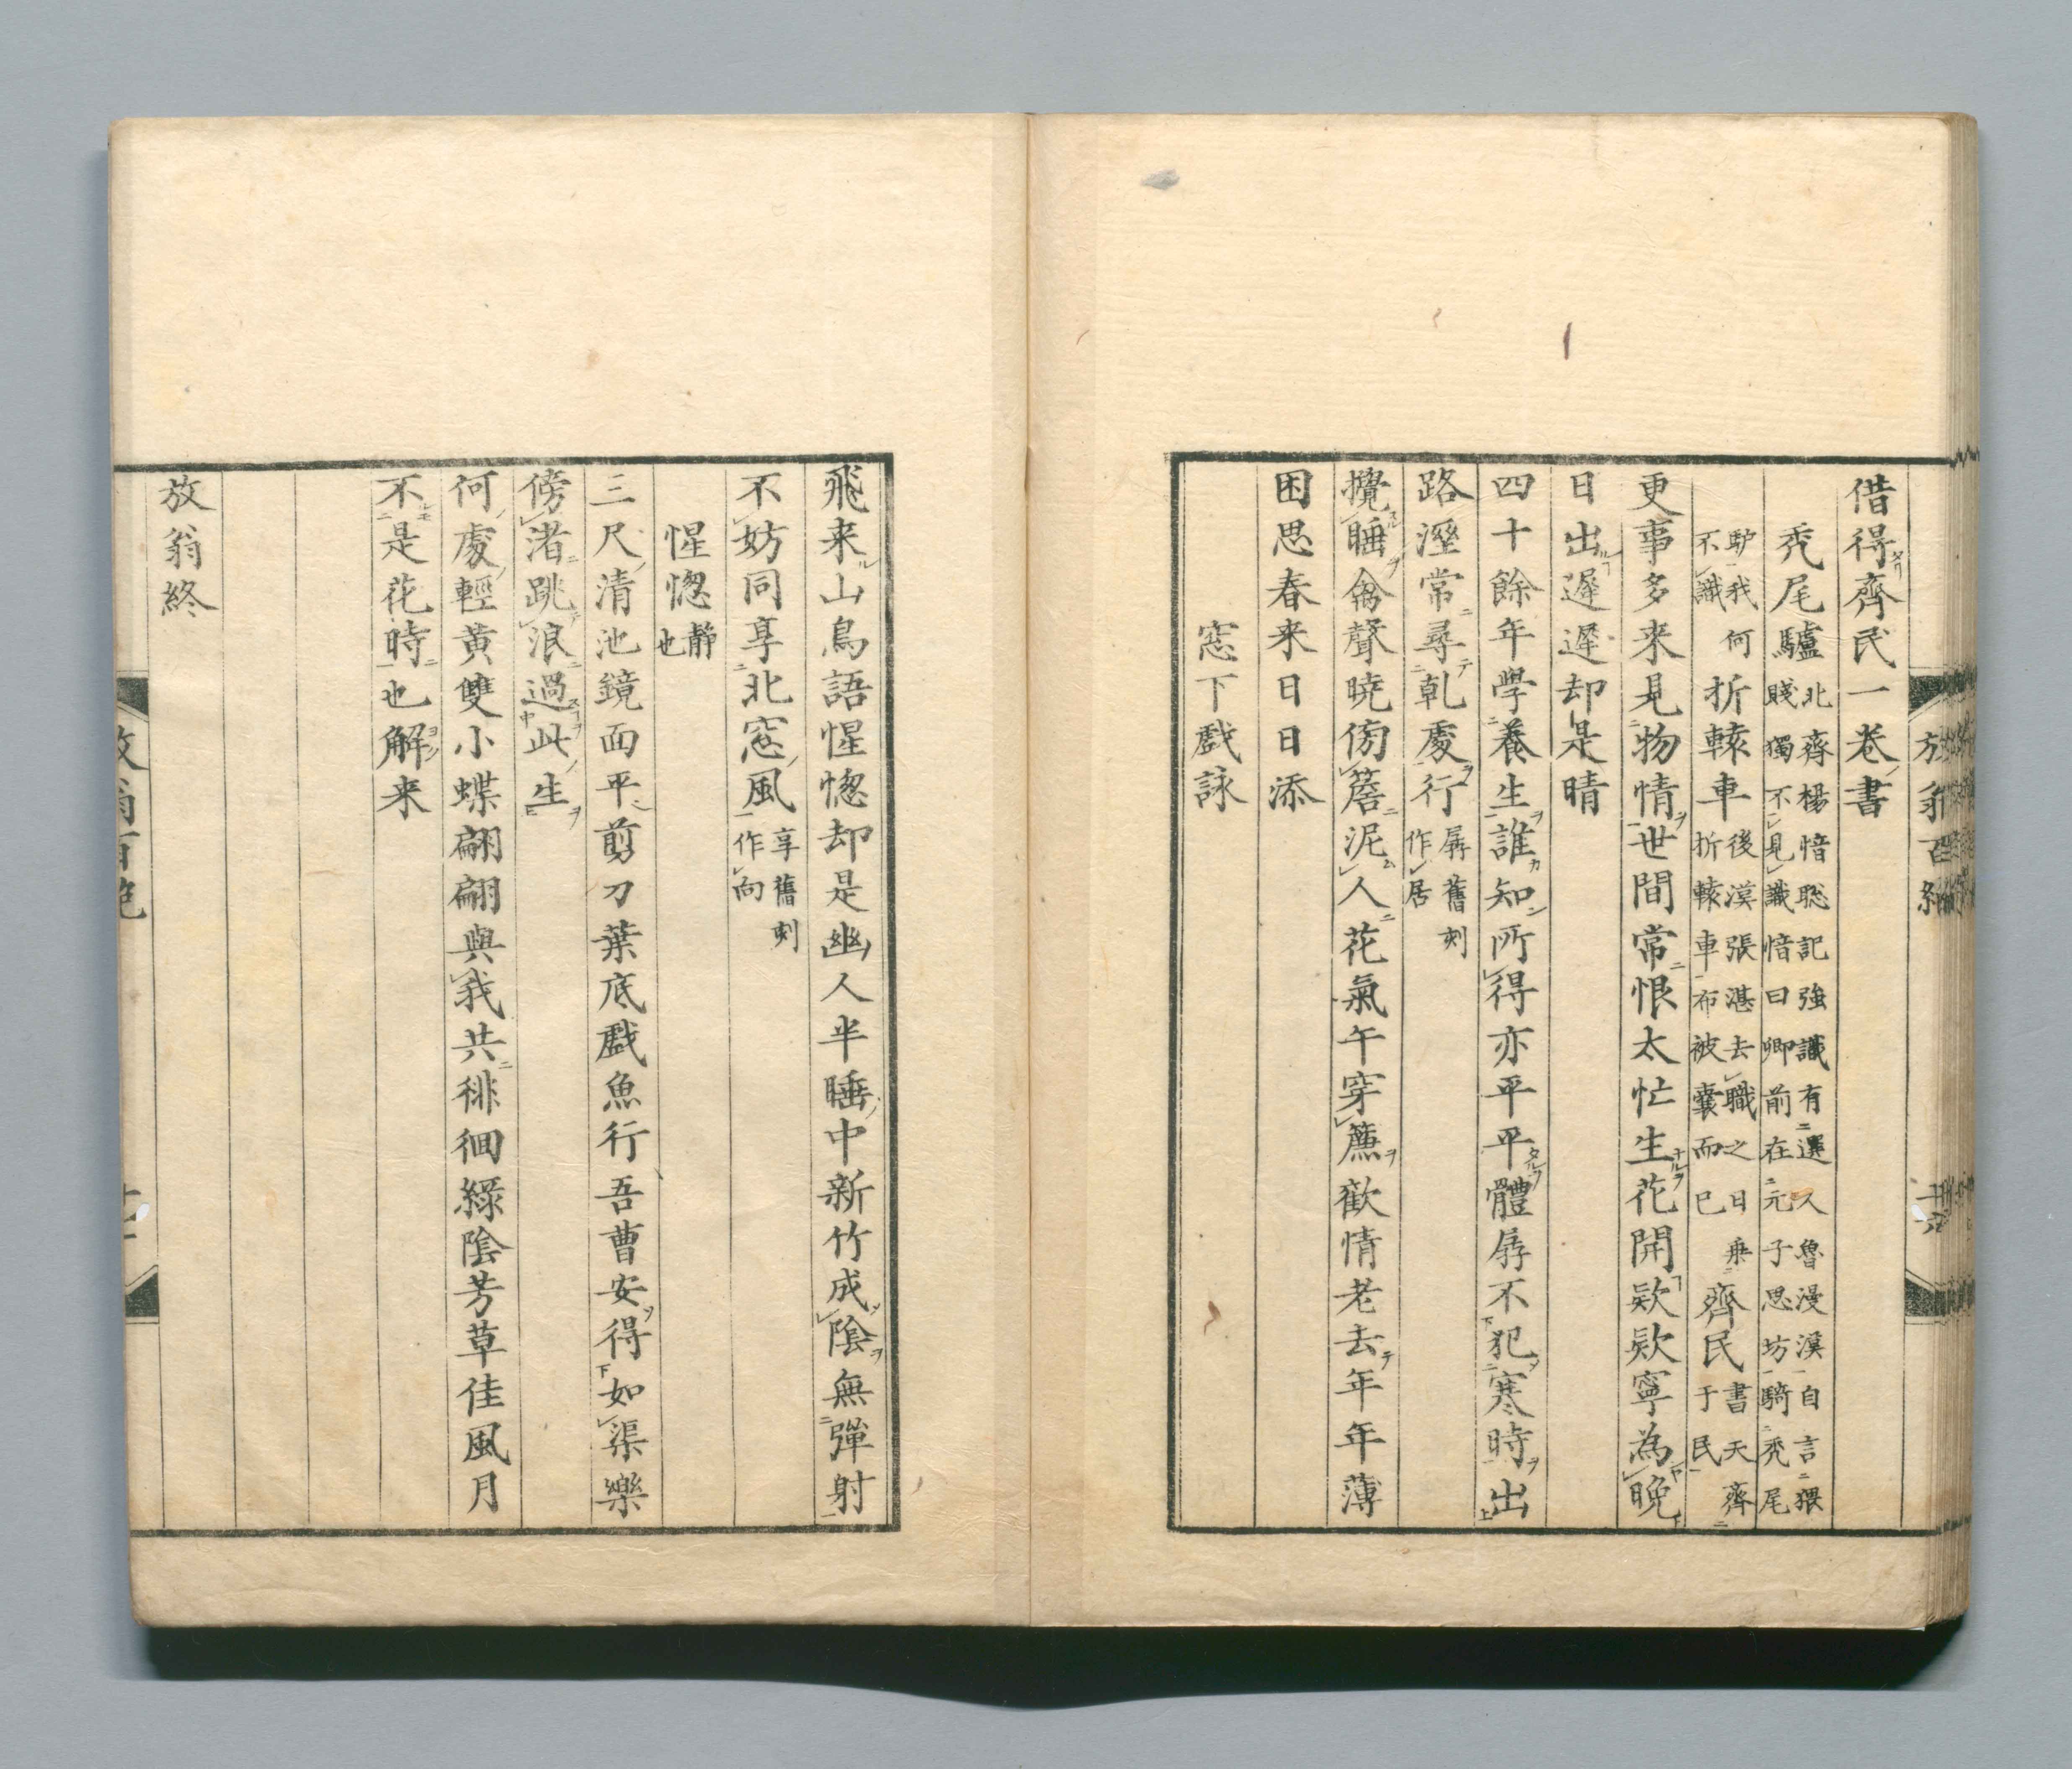 借得齊民一卷書
禿尾驢北齊楊愔聡記強識有選人魯漫漠自言猥賤獨不見識愔曰卿前在元子思坊騎禿尾
馿我何不識折轅車後漢張湛去職之日乗折轅車布被囊而已齊民書天齊于民
更事多来見物情世間常恨太忙生花開欵欵寧為晚
日出遲遲却是晴
四十餘年學養生誰知所得亦平平體孱不犯寒時出
路溼常尋乹處行孱舊刻作居
攪睡禽聲曉傍簷泥人花氣午穿簾歡情老去年年薄
困思春来日日添
窓下戯詠
飛来山鳥語惺惚却是幽人半睡中新竹成陰無彈射
不妨同享北窓風享舊刻作向
惺惚静也
三尺清池鏡面平剪刀葉底戯魚行吾曹安得如渠樂
傍渚跳浪過此生
何處輕黄雙小蝶翩翩與我共徘徊綠陰芳草佳風月
不是花時也解来
放翁終